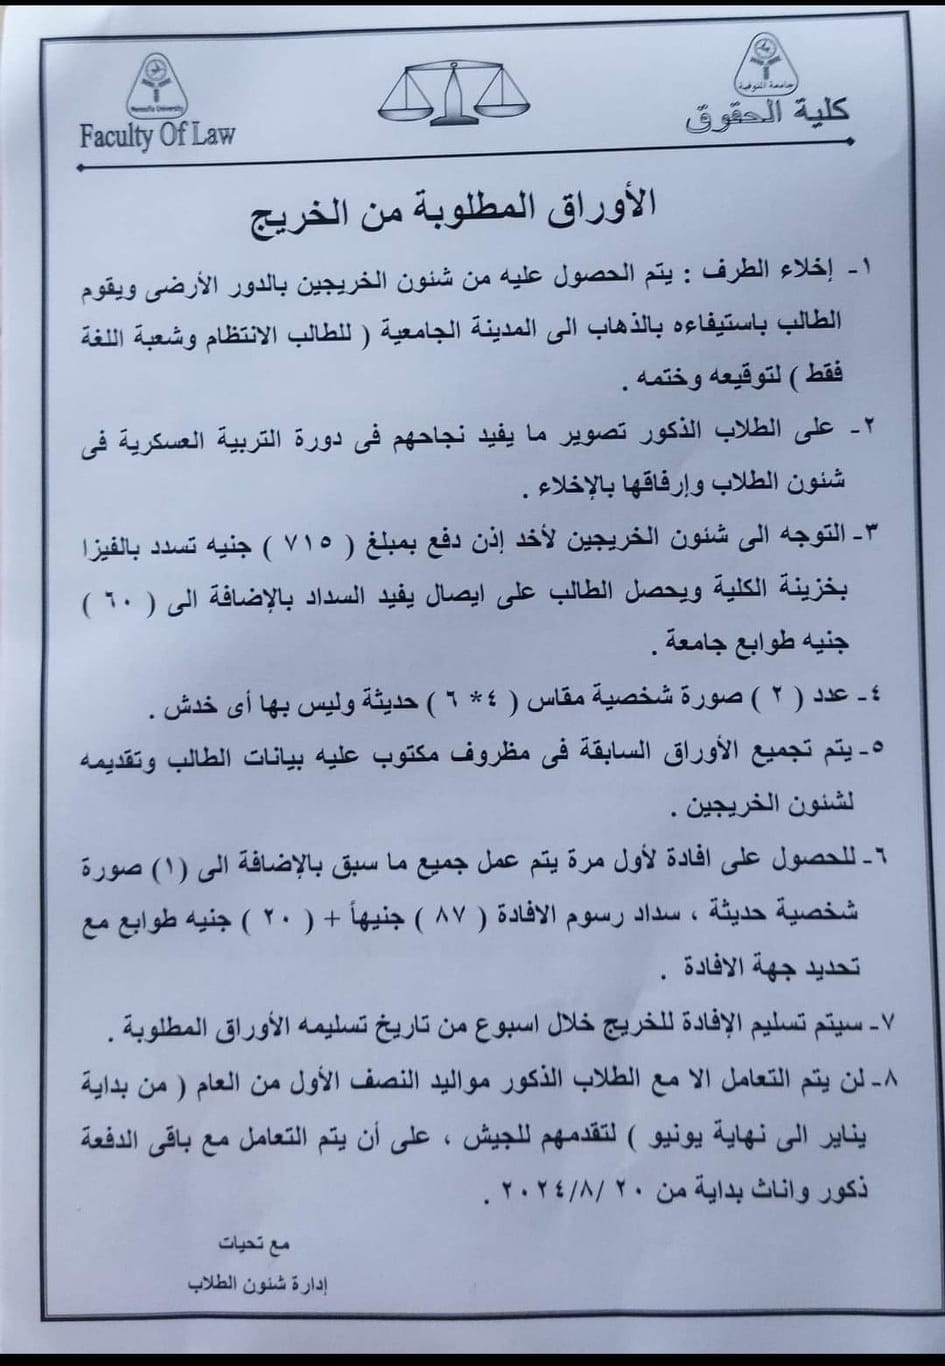 جامعة المنوفية
كلية الحقوق
Menoufia University
Faculty Of Law
الأوراق المطلوبة من الخريج
١- إخلاء الطرف : يتم الحصول عليه من شئون الخريجين بالدور الأرضى ويقوم
الطالب باستيفاءه بالذهاب الى المدينة الجامعية ( للطالب الانتظام وشعبة اللغة
فقط ) لتوقيعه وختمه .
٢- على الطلاب الذكور تصوير ما يفيد نجاحهم فى دورة التربية العسكرية فى
شئون الطلاب وإرفاقها بالإخلاء .
٣- التوجه الى شئون الخريجين لأخد إذن دفع بمبلغ ( ٧١٥ ) جنيه تسدد بالفيزا
بخزينة الكلية ويحصل الطالب على ايصال يفيد السداد بالإضافة الى ( ٦٠ )
جنيه طوابع جامعة .
٤- عدد ( ٢ ) صورة شخصية مقاس ( ٤* ٦ ) حديثة وليس بها أى خدش .
٥- يتم تجميع الأوراق السابقة فى مظروف مكتوب عليه بيانات الطالب وتقديمه
لشئون الخريجين .
٦- للحصول على افادة لأول مرة يتم عمل جميع ما سبق بالإضافة الى (١) صورة
شخصية حديثة ، سداد رسوم الافادة ( ٨٧ ) جنيهاً + ( ٢٠ ) جنيه طوابع مع
تحديد جهة الافادة .
٧- سيتم تسليم الإفادة للخريج خلال اسبوع من تاريخ تسليمه الأوراق المطلوبة .
٨- لن يتم التعامل الا مع الطلاب الذكور مواليد النصف الأول من العام ( من بداية
يناير الى نهاية يونيو ) لتقدمهم للجيش ، على أن يتم التعامل مع باقى الدفعة
ذكور واناث بداية من ٢٠ /٢٠٢٤/٨ .
مع تحيات
إدارة شئون الطلاب